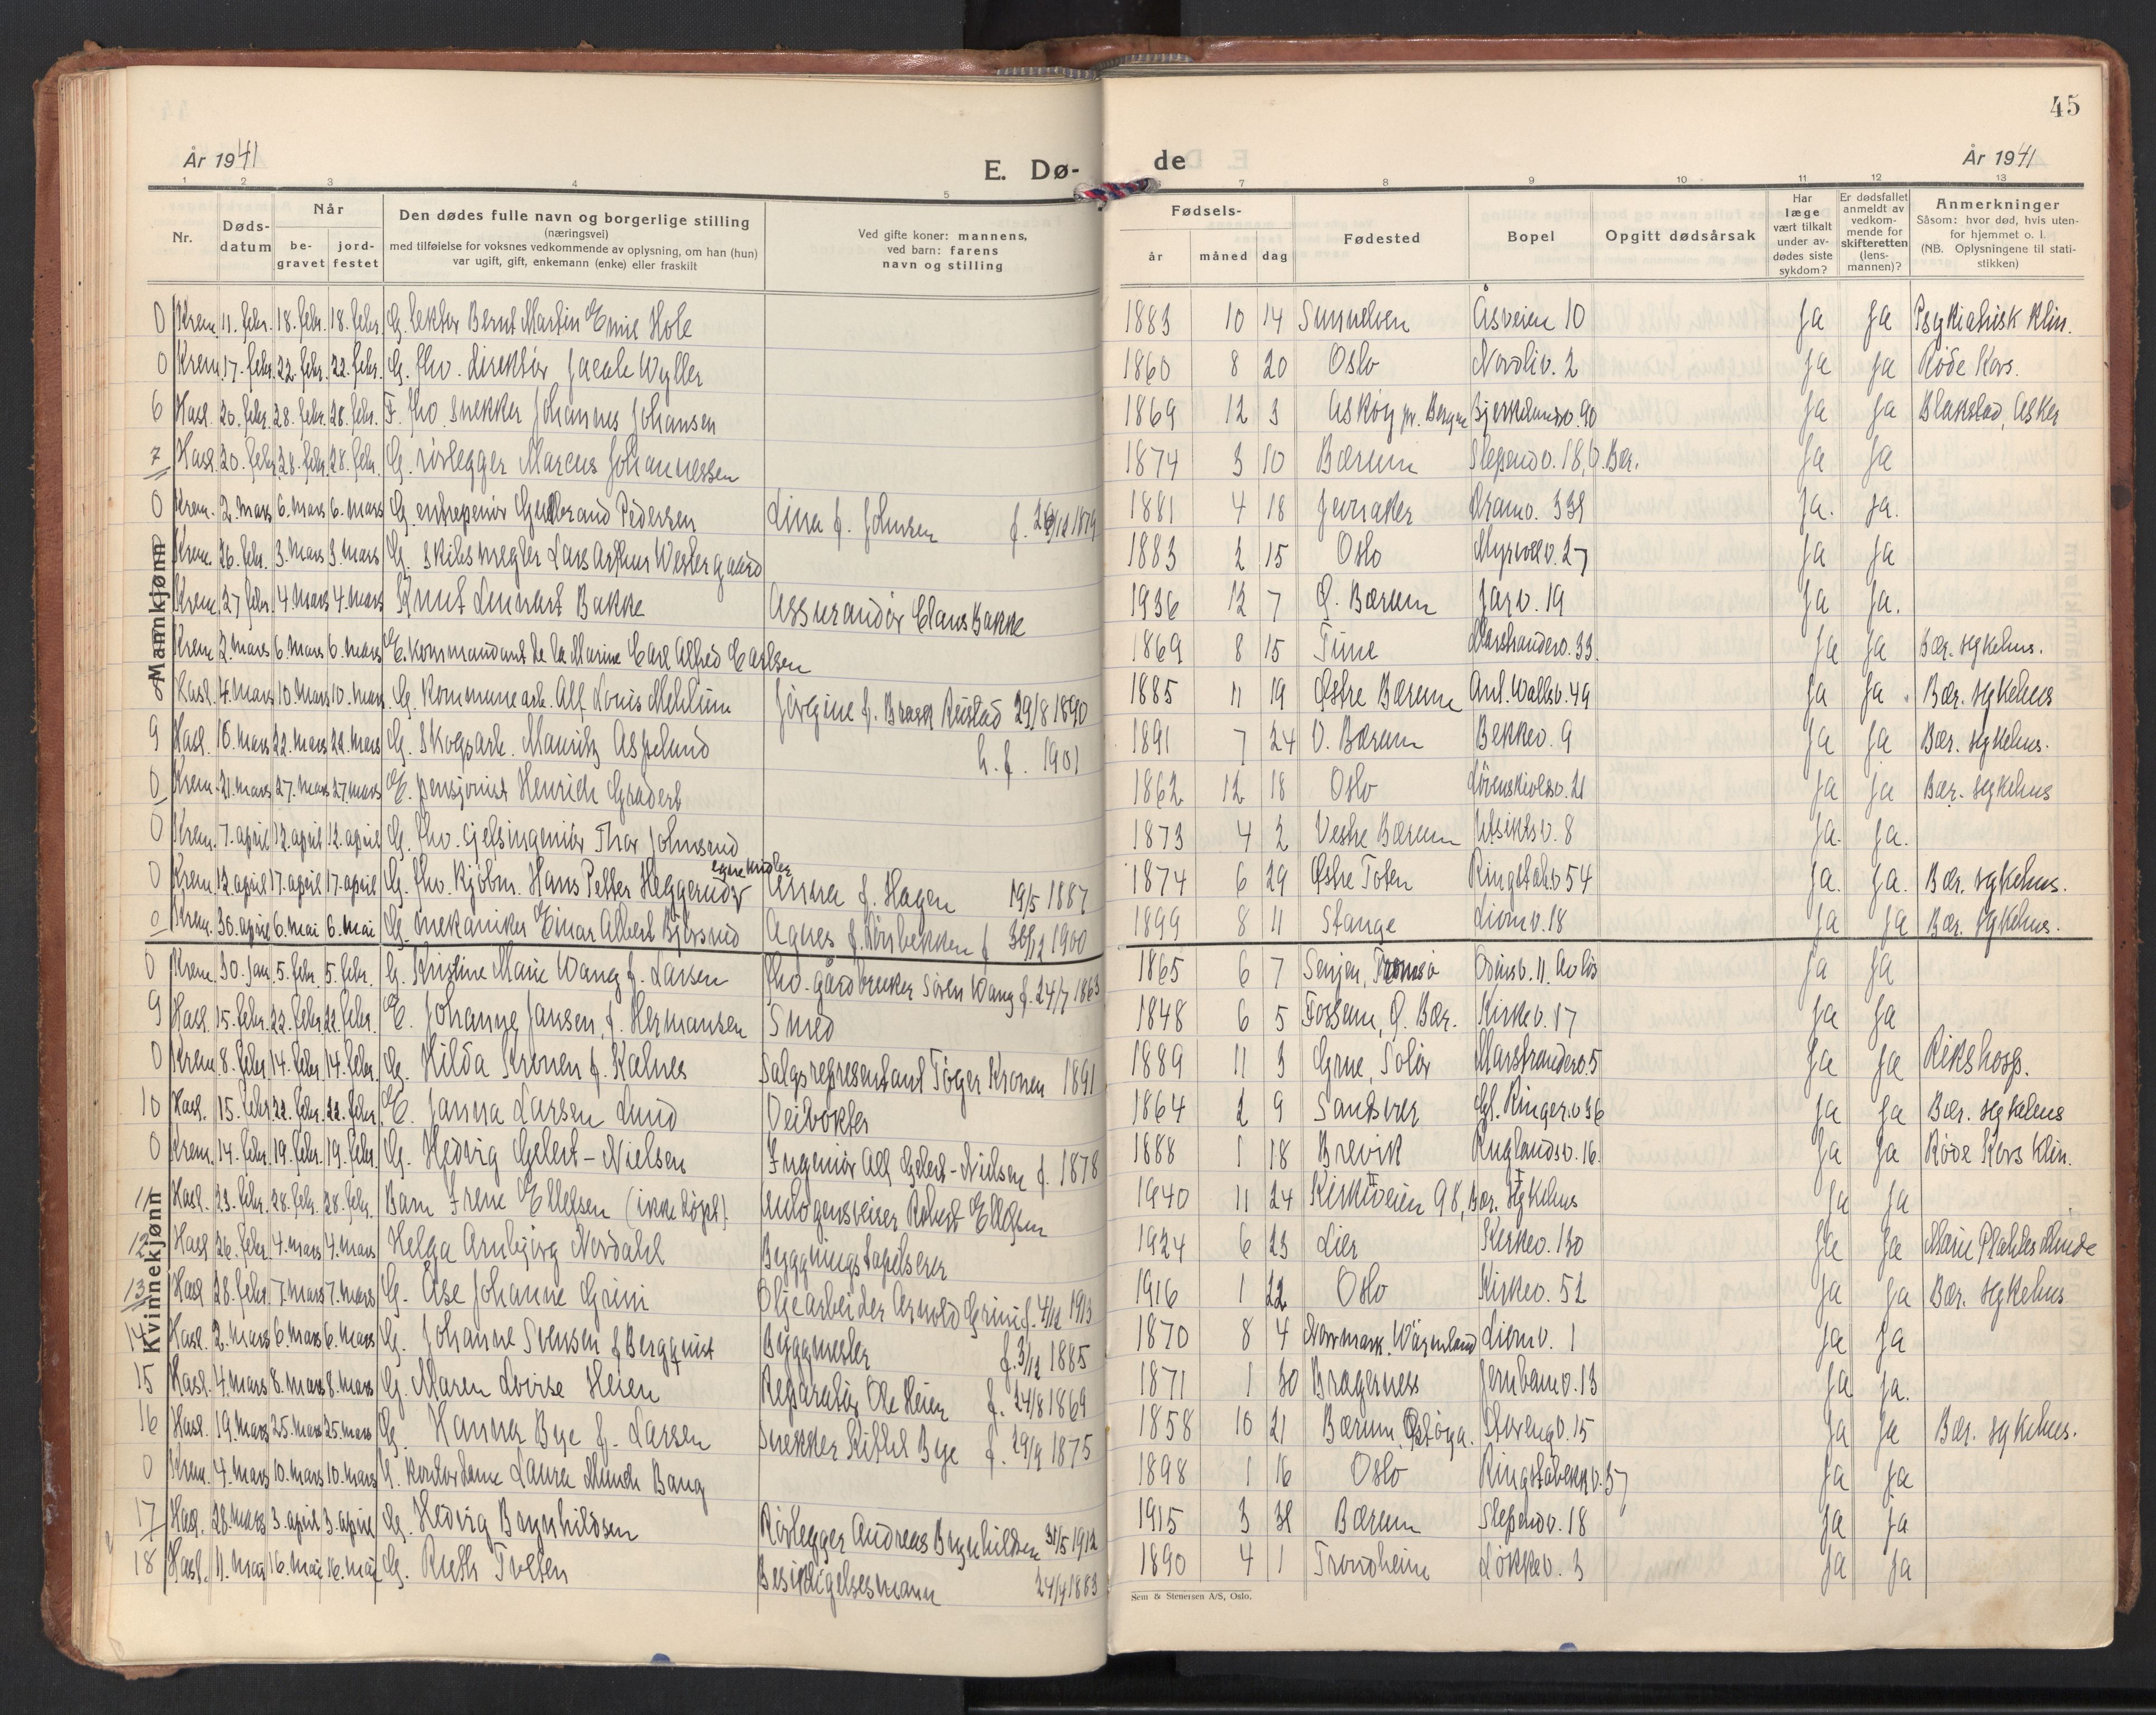 45
År 1941
E. Dø-
de
År 1941
1 2 3 4 5 7 8 9 10 11 12 13
Nr.
Døds-
datum
Når
be-
gravet
jord-
festet
Den dødes fulle navn og borgerlige stilling
(næringsvei)
med tilføielse for voksnes vedkommende av oplysning, om han (hun)
var ugift, gift, enkemann (enke) eller fraskilt
Ved gifte koner: mannens,
ved barn: farens
navn og stilling
Fødsels-
år
måned
dag
Fødested
Bopel
Opgitt dødsårsak
Har
læge
vært tilkalt
under av-
dødes siste
sykdom?
Er dødsfallet
anmeldt av
vedkom-
mende for
skifteretten
(lens-
mannen)?
Anmerkninger
Såsom: hvor død, hvis uten-
for hjemmet o. l.
(NB. Oplysningene til stati-
stikken)
Mannkjønn
0 Krem. 11. febr. 18. febr. 18. febr. G. lektor Bernt Martin Emil Hole 1883 10 14 Sunnelven Åsveien 10 Ja Ja Psykiatrisk Klin.
0 Krem. 17. febr. 22. febr. 22. febr. G. fhv. direktör Jacob Wyller 1860 8 20 Oslo Nordliv. 2 Ja Ja Røde Kors.
6 Hasl. 20. febr. 28. febr. 28. febr. F. fho. snekker Johannes Johansen 1869 12 3 Askøy pr. Bergen Bjerkelundsv. 90 Ja Ja Blakstad, Asker
7 Hasl. 20. febr. 28. febr. 28. febr. G. rörlegger Marcus Johannessen 1874 3 10 Bærum Slependv. 18, V. Bær. Ja Ja
0 Krem. 2. mars 6. mars 6. mars G. entrepenör Gudbrand Pedersen Lina f. Johnsen f. 26/12 1879 1881 4 18 Jevnaker Dramv. 338 Ja. Ja.
0 Krem. 26. febr. 3. mars 3. mars G. skibsmegler Lars Arthur Westergaard 1883 2 15 Oslo Myrvollv. 27 Ja Ja
Krem. 27 febr. 4. mars 4. mars Knut Lennart Bakke Assurandör Claus Bakke 1936 12 7 Ø. Bærum Jarv. 19 Ja Ja.
Krem. 2. mars 6. mars 6. mars E. kommandant de la Marine Carl Alfred Carlsen 1869 8 15 Tune Marstranderv. 33. Ja Ja Bær. sykehus.
Hasl. 4. mars 10. mars 10. mars G. kommunearb. Alf Louis Mehlum Jörgine f. Brask Rustad 29/8 1890 1885 11 19 Østre Bærum Ant. Wallsv. 49 Ja Ja. Bær. sykehus
9 Hasl. 16. mars 22. mars 22. mars G. Skogsarb. Mauritz Aspelund h. f. 1901 1891 7 24 V. Bærum Bekkev. 9 Ja Ja Bær. sykehus.
0 Krem. 21. mars 27. mars 27. mars E. pensjonist Henrich Gradert 1862 12 18 Oslo Lövenskioldsv. 21 Ja Ja Bær. sykehus
0 Krem. 7. april 12. april 12. april G. fhv. Gjelsingeniör Thor Johnsrud 1873 4 2 Vestre Bærum Utsiktsv. 8 Ja. Ja.
0 Krem. 12. april 17. april 17. april G. fhv. kjöbm. Hans Petter Heggerud egne midler Anna f. Hagen 19/5 1887 1874 6 29 Østre Toten Ringstabv. 54 Ja. Ja. Bær. sykehus.
0 Krem. 30. april 6. mai 6. mai G. mekaniker Einar Albert Björsrud Agnes f. f. 30/12 1900 1899 8 11 Stange Liomv. 18 Ja Ja Bær. sykehus.
Kvinnekjønn
0 Krem. 30. jan. 5. febr. 5. febr. G. Kristine Marie Wang f. Larsen fhv. gårdbruker Sören Wang f. 24/7 1863 1865 6 7 Senjen, Tromsö Odinsv. 11. Ja Ja
9 Hasl. 15. febr. 22. febr. 22. febr. E. Johanne Jansen, f. Hermansen Smed 1848 6 5 Fossum, Ø. Bær. Kirkev. 17 Ja Ja
0 Krem. 8. febr. 14. febr. 14. febr. G. Hilda Kronen f. Kalnes Salgsrepresentant Töger Kronen 1891 1889 11 3 Grue, Solör Marstranderv. 5 Ja Ja Rikshosp.
10 Hasl. 15. febr. 22. febr. 22. febr. E. Janna Larsen Lund Veivokter 1864 2 9 Sandsvær Gl. Ringer.v 36 Ja Ja Bær. sykehus
0 Krem. 14. febr. 19. febr. 19. febr. G. Hedvig Gelert-Nielsen Ingeniör Alf Gelert-Nielsen f. 1878 1888 1 18 Brevik Ruglandsv. 16. Ja Ja Röde Kors Klin.
11 Hasl. 23. febr. 28. febr. 28. febr. Barn Irene Ellefsen (ikke döpt). Autogensveiser Robert Ellefsen 1940 11 24 Kirkeveien 98, Bær. sykehus Ja Ja
12 Hasl 26. febr. 4. mars 4. mars Helga Arnbjörg Nordahl Bygningstapetserer 1924 6 23 Lier Kirkev. 130 Ja Ja Marie Plahtes Minde
13 Hasl 28. febr. 7. mars 7. mars G. Åse Johanne Grini Oljearbeider Arnold Grini f. 4/12 1913 1916 1 22 Oslo Kirkev. 52 Ja Ja Bær. sykehus
14 Hasl. 2. mars 6. mars 6. mars G. Johanne Svensen f Bergquist Byggmester f. 3/12 1885 1870 8 4 Norrmark. Wärmland Liomv. 1 Ja Ja
15 Hasl. 4. mars 8. mars 8. mars G. Maren Lovise Heien Reparatör Ole Heien f. 24/8 1869 1871 1 30 Bragerness Jernbanev. 13 Ja Ja.
16 Hasl. 19. mars 25. mars 25. mars G. Hanna Bye f. Larsen Snekker Kittil Bye f. 29/9 1875 1858 10 21 Bærum, Skrivergv. 15 Ja Ja Bær. sykehus.
0 Krem. 4. mars 10. mars 10. mars U. kontordame Laura Munch Bang 1898 1 16 Oslo Ringstabekkv. 37 Ja Ja
17 Hasl. 28. mars 3. april 3. april G. Hedvig Brynhildsen Rörlegger Andreas Brynhildsen 31/5 1912 1915 3 31 Bærum Slependv. 18 Ja Ja
18 Hasl. 11. mai 16. mai 16. mai G. Ruth Tveten Besiktigelsesmann 24/4 1883 1890 4 1 Trondheim Løkkev. 3 Ja Ja
Sem & Stenersen A/S, Oslo.